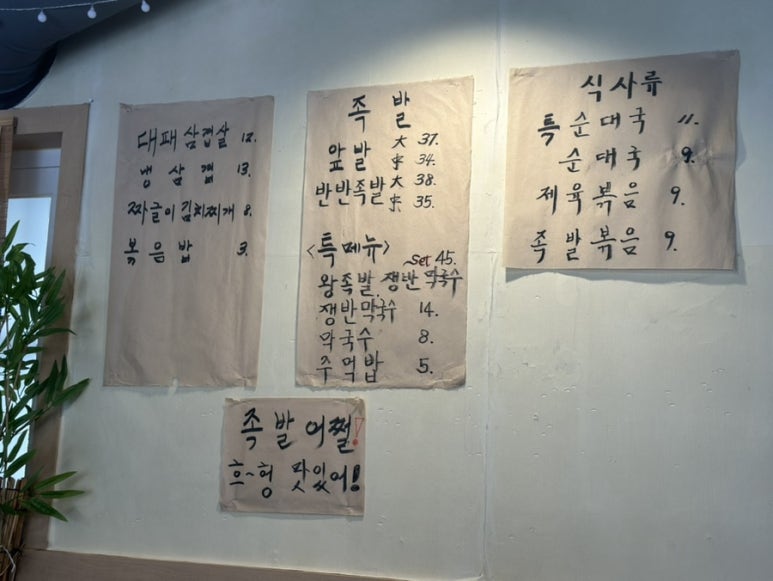 대패삼겹살 12.
냉삼겹 13.
짜글이김치찌개 8.
볶음밥 3.
족발
앞발 大 37.
中 34.
반반족발 大 38.
中 35.
<특메뉴>
~Set 45.
왕족발, 쟁반막국수
쟁반막국수 14.
막국수 8.
주먹밥 5.
식사류
특순대국 11.
순대국 9.
제육볶음 9.
족발볶음 9.
족발어쩔!
흐~헝 맛있어!